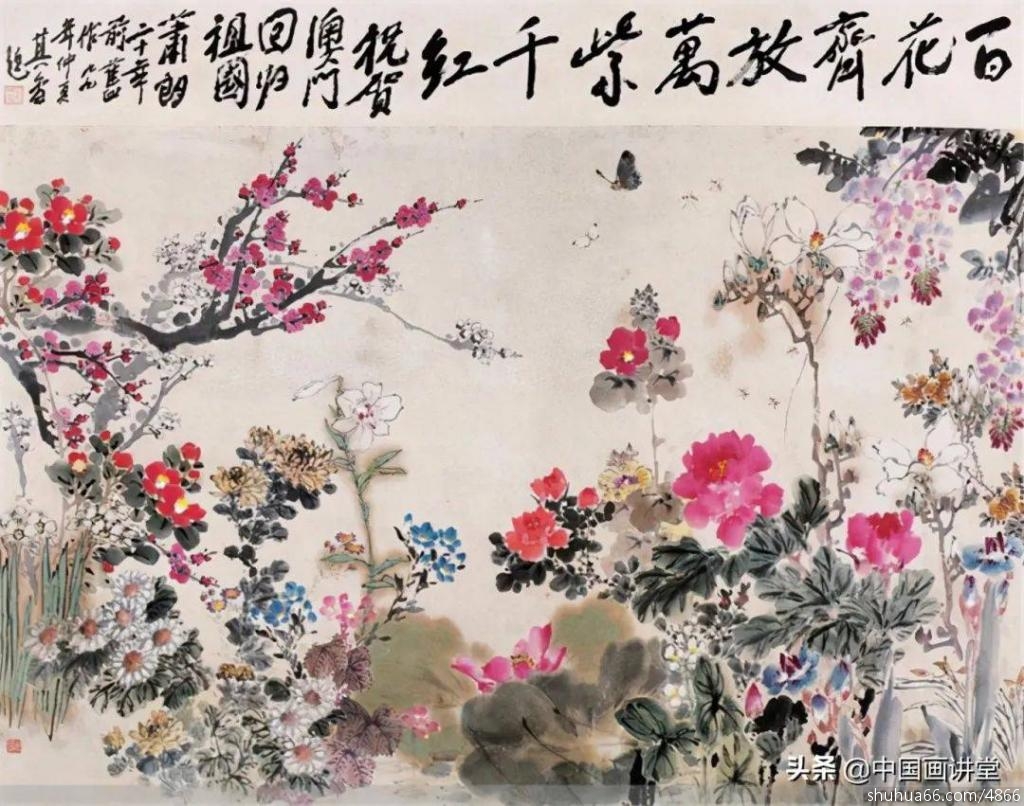 百花齊放萬紫千紅
祝賀
澳門
回归
祖國
蕭朗
二十年
前舊
作九九
年仲夏
头条 @中国画讲堂
shuhua66.com/4866